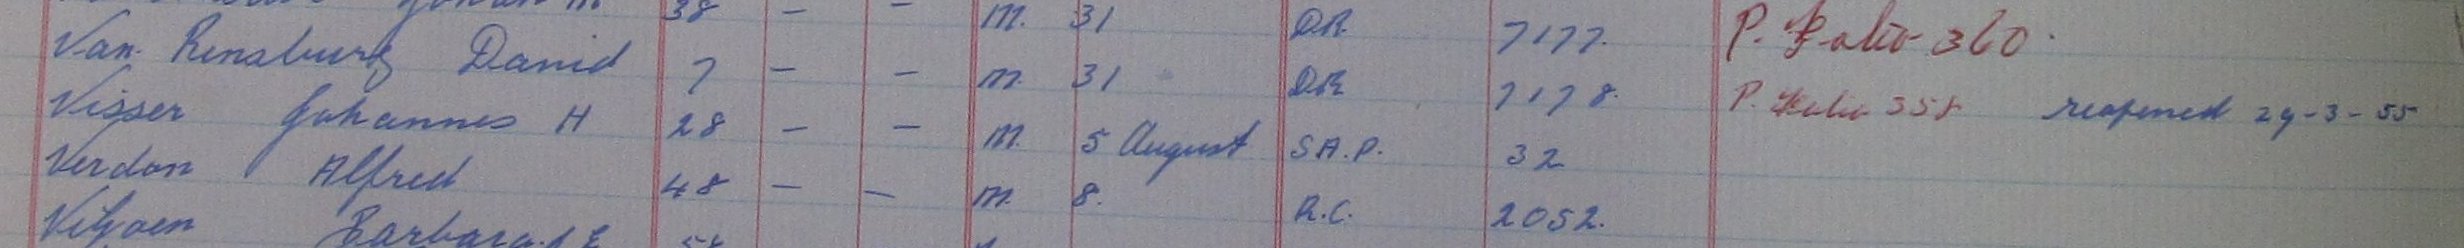 38 - - M. 31 DR. 7177. P. Folio 360.
Van Rensburg David 7 - - M. 31 DR 7178. P. Folio 358 reopened 29-3-55
Visser Johannes H 28 - - M. 5 August S.A.P. 32
Verdon Alfred 48 - - M. 8. R.C. 2052.
Viljoen Barbara